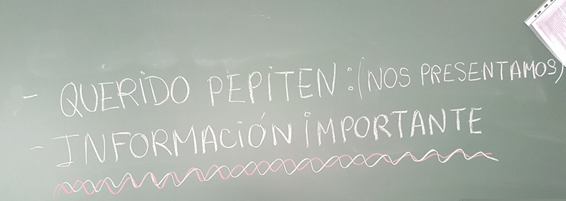 - QUERIDO PEPITEN: (NOS PRESENTAMOS)
- INFORMACIÓN IMPORTANTE